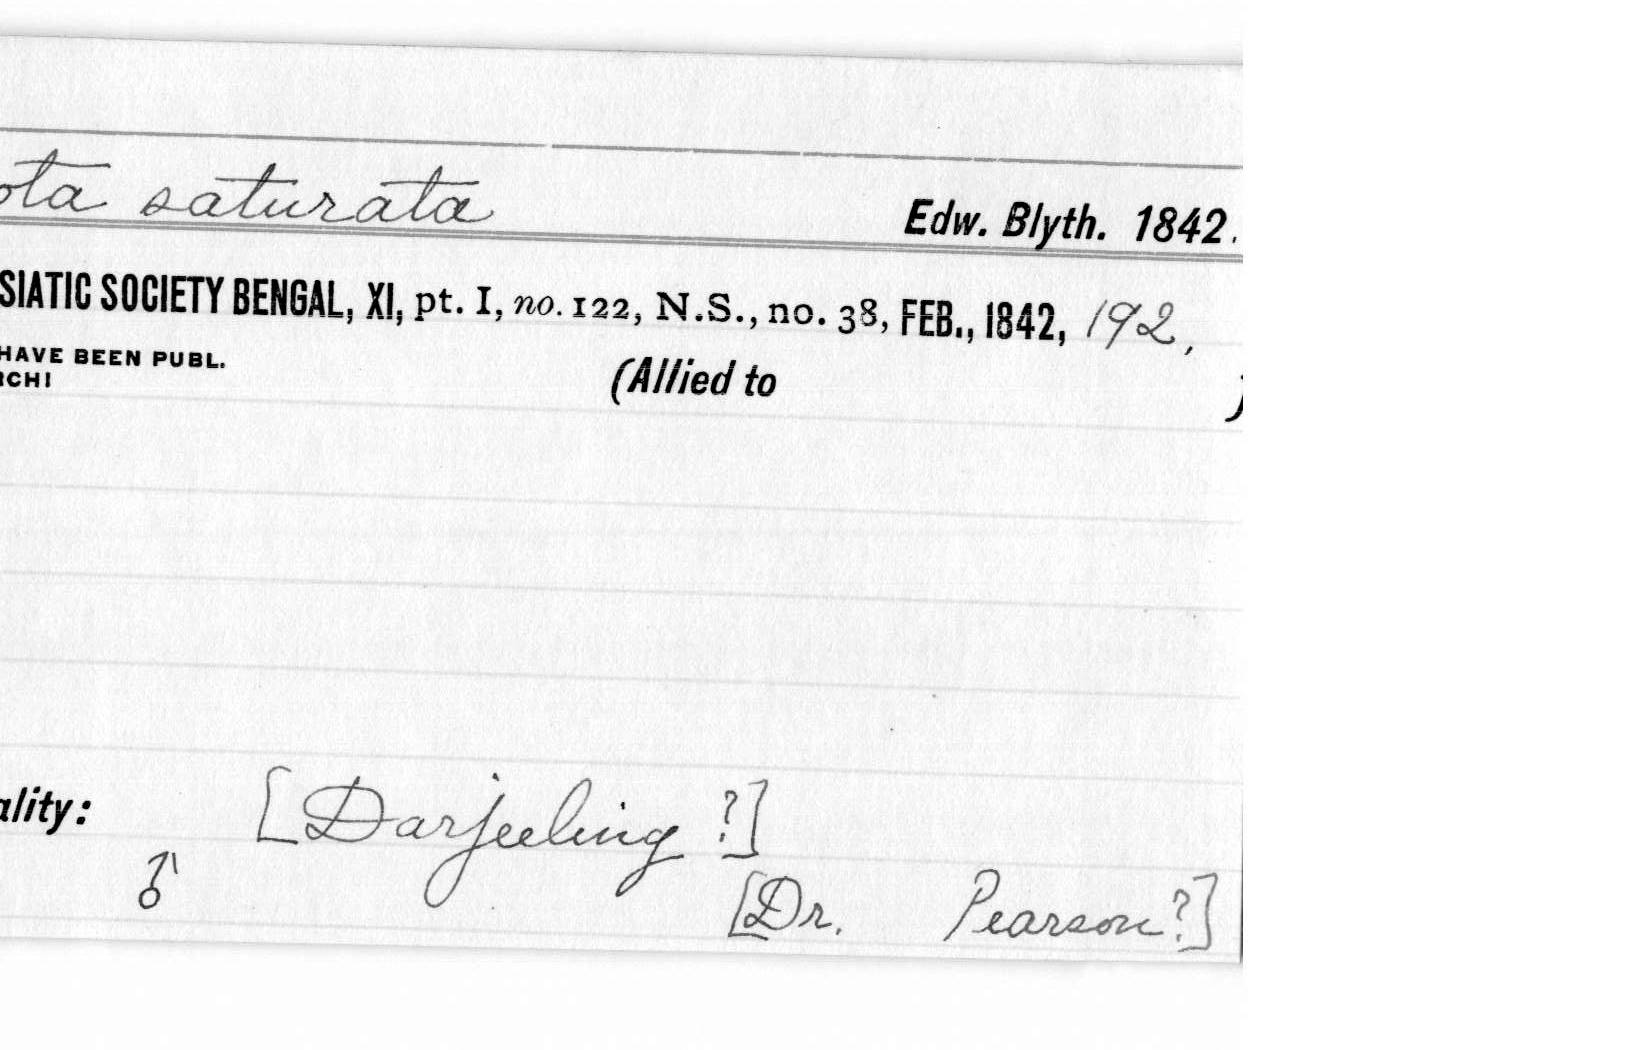 ota saturata
Edw. Blyth. 1842.
SIATIC SOCIETY BENGAL, XI, pt. I, no. 122, N.S., no. 38, FEB., 1842, 192,
HAVE BEEN PUBL.
RCHI
(Allied to )
ality: [Darjeeling ?]
♂ [Dr. Pearson?]